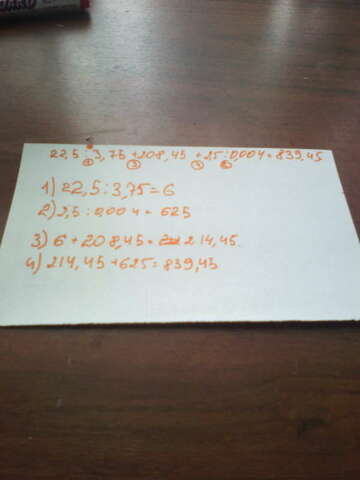 22,5:3,75+208,45+25:0,004=839,45
① ③ ④ ②
1) 22,5:3,75=6
2) 2,5:0,004=625
3) 6+208,45=214,45.
4) 214,45+625=839,45